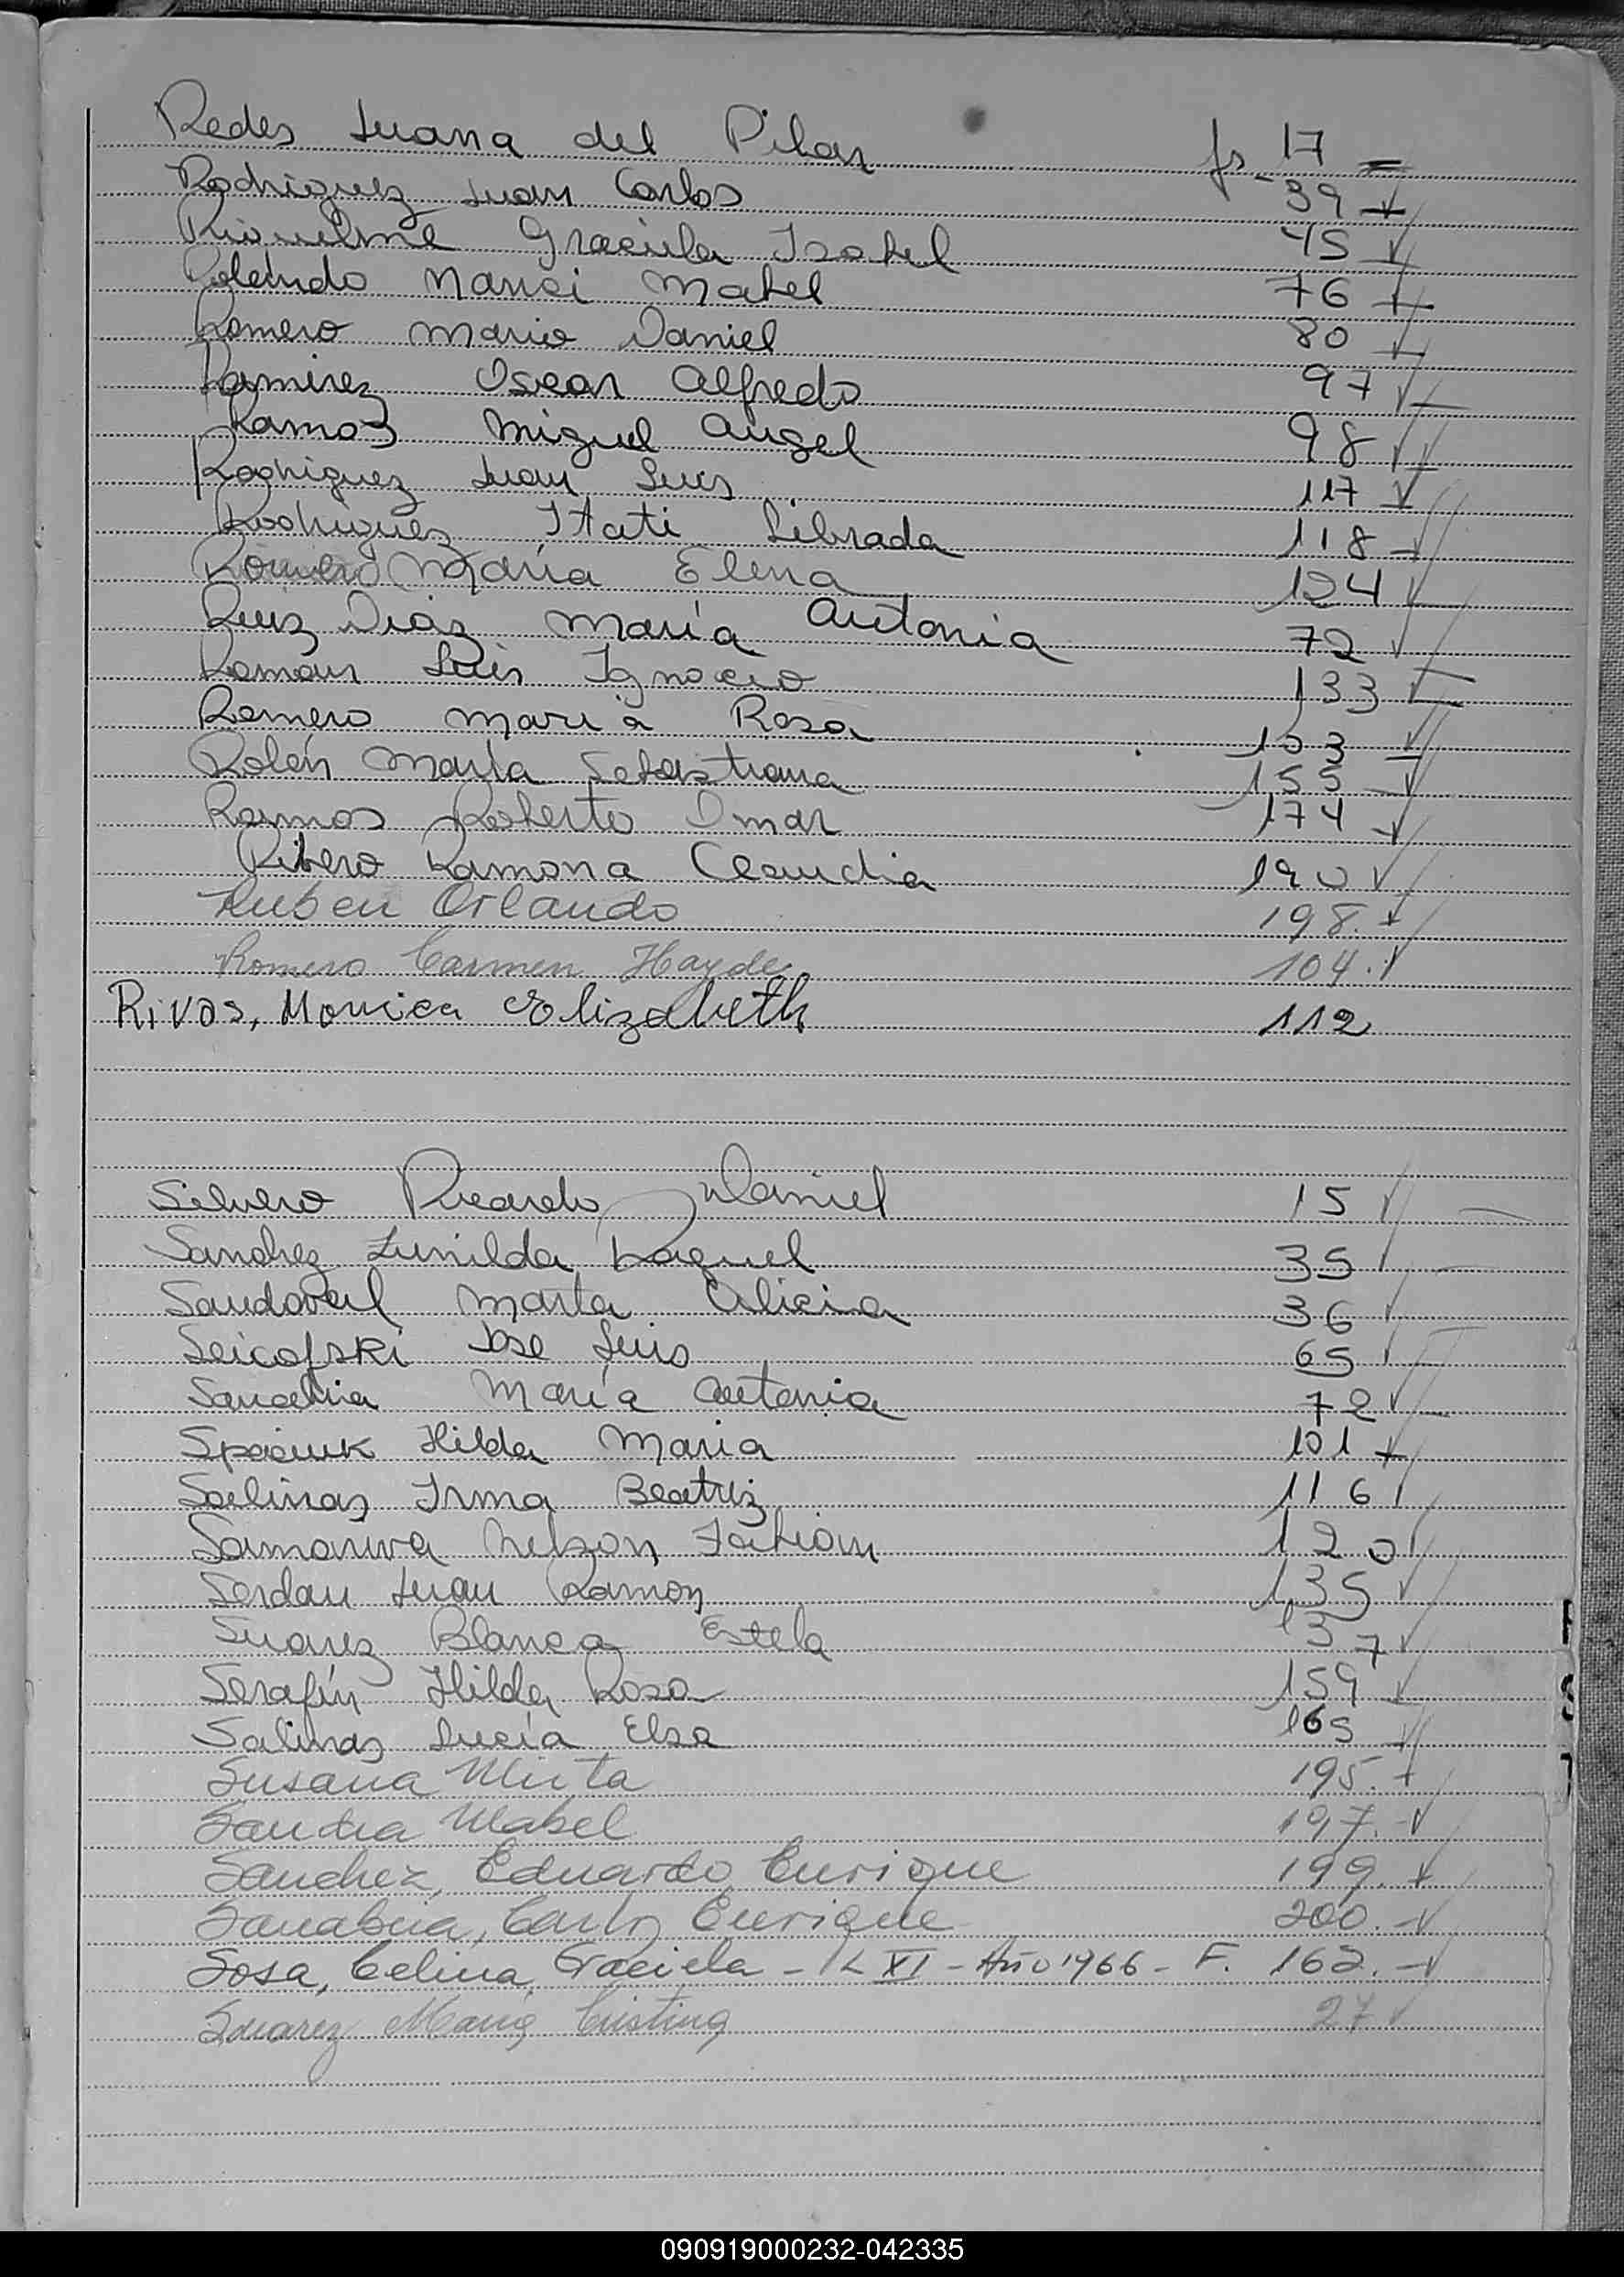 Redes Juana del Pilar fs 17
Rodriguez Juan Carlos 39
Riquelme Graciela Isabel 45
Rolando Nanci Mabel 76
Romero Mario Daniel 80
Ramirez Oscar Alfredo 97
Ramos Miguel Angel 98
Rodriguez Juan Luis 117
Rodriguez Itati Librada 118
Romero Maria Elena 124
Ruiz Diaz María Antonia 72
Roman Luis Ignacio 133
Romero Maria Rosa 153
Rolón María Sebastiana 155
Ramos Roberto Omar 174
Ribero Ramona Claudia 190
Ruben Orlando 198.
Romero Carmen Hayde 104.
Rivas, Monica Elizabeth 112
Silvero Ricardo Daniel 15
Sanchez Zunilda Raquel 35
Sandoval Marta Alicia 36
Seicofski Jose Luis 65
María Antonia 72
Spaciuk Hilda Maria 101
Salinas Irma Beatriz 116
Nelson Fabian 120
Serdan Juan Ramon 135
Suarez Blanca Estela 137
Serafín Hilda Rosa 159
Salinas Lucía Elsa 165
Susana Mirta 195.
Sandra Mabel 197.
Sanchez, Eduardo Enrique 199.
Sanabria, Carlos Enrique 200.
Sosa, Celina Graciela - L XI - Año 1966 - F. 162.
Suarez María Cristina 27
090919000232-042335